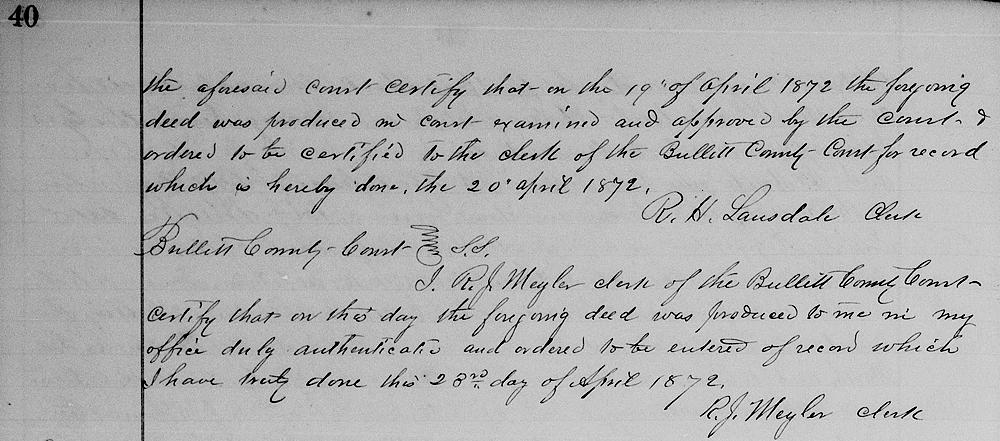 40
the aforesaid court certify that on the 19" of April 1872 the foregoing
deed was produced in court examined and approved by the court &
ordered to be certified to the clerk of the Bullitt County Court for record
which is hereby done, the 20" april 1872.
R. H. Lansdale Clerk
Bullitt County Court S.S.
I. R. J. Meyler clerk of the Bullitt County Court
certify that on this day the foregoing deed was produced to me in my
office duly authenticated and ordered to be entered of record which
I have truly done this 23rd day of April 1872.
R. J. Meyler clerk